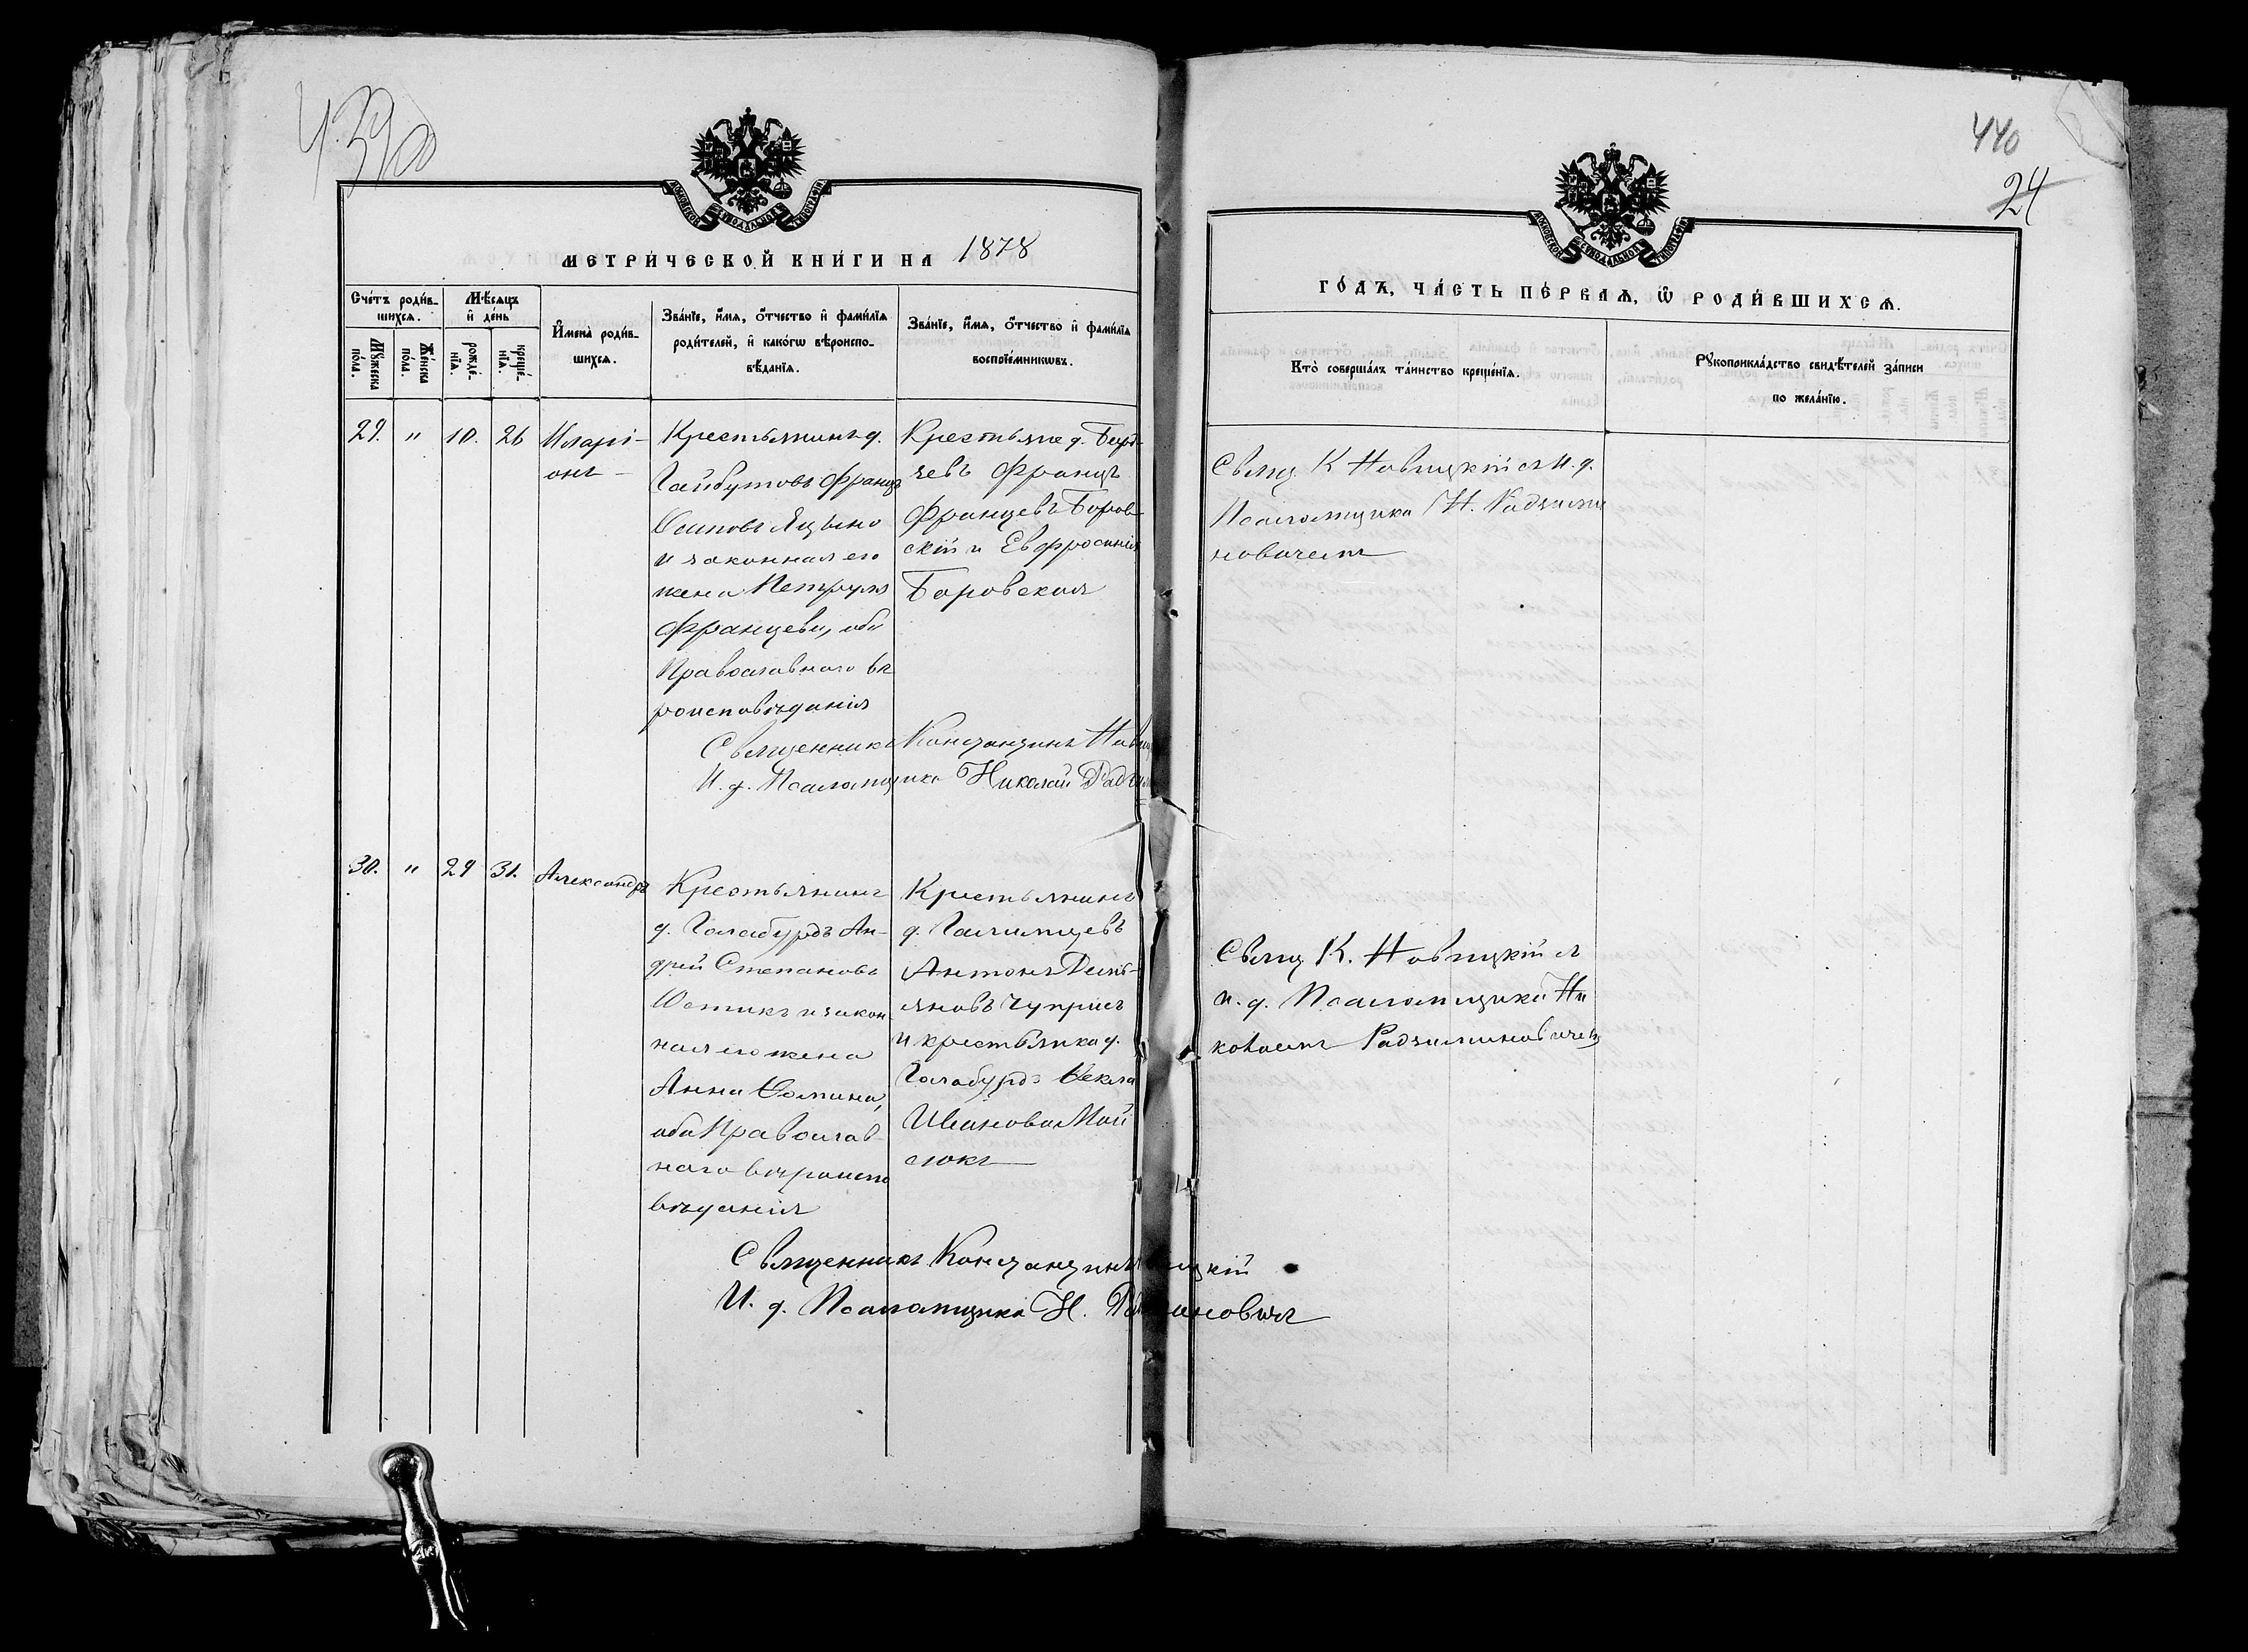 439об
МОСКОВСКОЙ СѴНОДАЛЬНОЙ ТИПОГРАФІИ
МЕТРИ́ЧЕСКОЙ КНИ́ГИ НА 1878
Сче́тъ роди́в-
шихся.
Мꙋ́жеска
по́ла.
Же́нска
по́ла.
Мѣ́сяцъ
и҆ де́нь
рожде́-
нїя.
креще́-
нїя.
И҆мена̀ роди́в-
шихся.
Зва́нїе, и҆́мя, ѻ҆́тчество и҆ фами́лїя
роди́телей, и҆ како́гѡ вѣроиспо-
вѣ́данїя.
Зва́нїе, и҆́мя, ѻ҆́тчество и҆ фами́лїя
воспрїе́мникѡвъ.
29. " 10. 26
Иларі-
онъ
Крестьянинъ д.
Гайбутовъ Францъ
Осиповъ Яцыно
и законная его
жена
Францева, оба
Православнаго вѣ
роисповѣданія
Крестьяне д.
чевъ Францъ
Францевъ Боров-
скій и Евфросинія
Боровская
Священникъ Константинъ
И. д. Псаломщика Николай
30. " 29 31.
Александръ
Крестьянинъ
д. Галабурдъ Ан-
дрей Степановъ
Остикъ и закон
ная его жена
Анна Ѳомина,
оба Православ
наго вѣроиспо
вѣданія
Крестьянинъ
д.
Антонъ Демь-
яновъ Чуприсъ
и крестьянка д.
Галабурдъ Ѳекла
Иванова Мой
сюкъ
Священникъ Константинъ
И. д. Псаломщика Н.
440
24
МОСКОВСКОЙ СѴНОДАЛЬНОЙ ТИПОГРАФІИ
ГО́ДЪ, ЧА́СТЬ ПЕ́РВАЯ, Ѽ РОДИ́ВШИХСЯ.
Кто̀ соверша́лъ та́инство креще́нїя.
Рꙋкоприкла́дство свидѣ́телей за́писи
по жела́нїю.
Свящ. К Новицкій съ И. д.
Псаломщика Н. Радзими
новичемъ
Свящ К. Новицкій съ
и. д. Псаломщика Ни
колаемъ Радзиминовичемъ